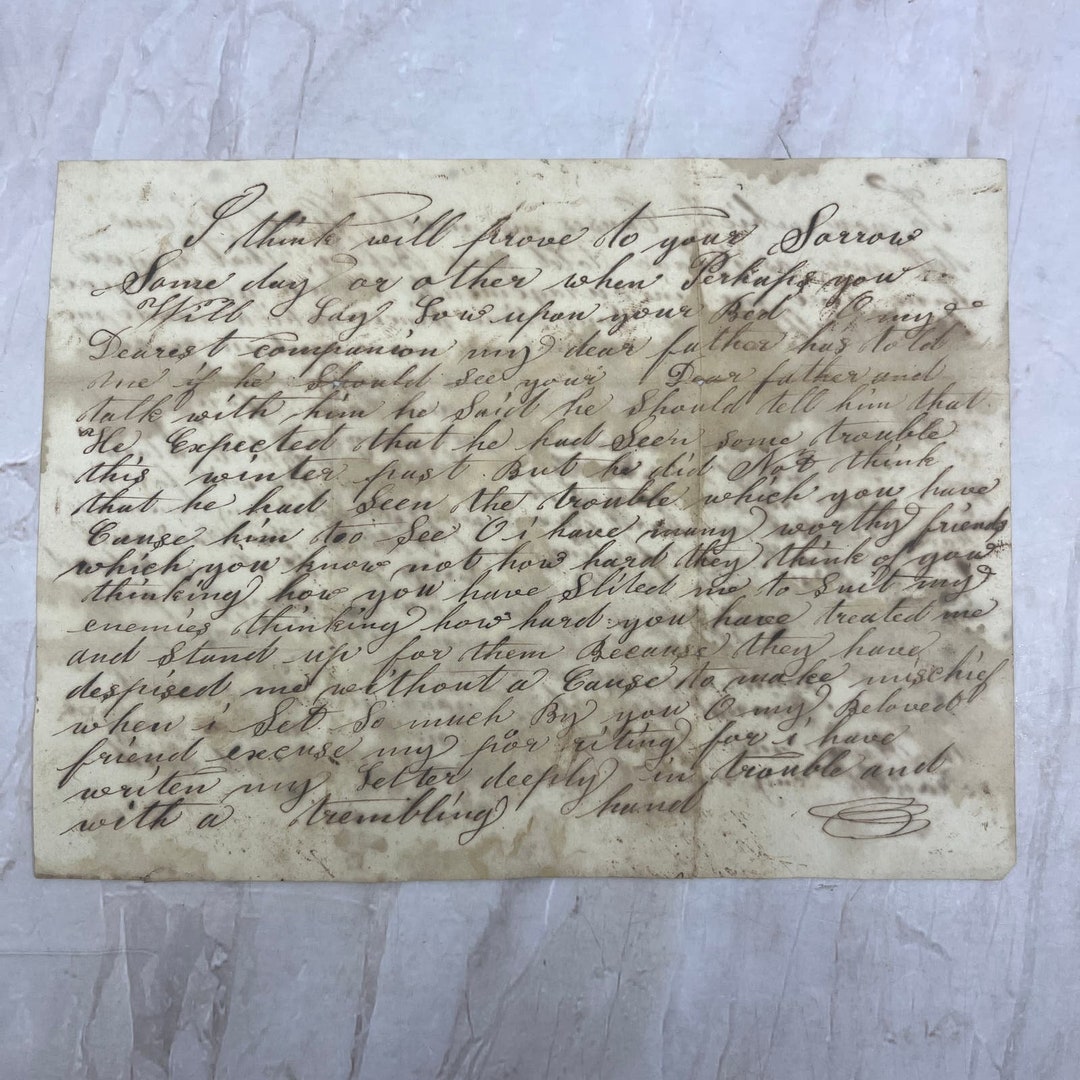 I think will prove to your Sorrow
Some day or other when Perhaps you
Will Lay Low upon your Bed O my
Dearest companion my dear father has told
me if he Should See your Dear father and
talk with him he Said he Should tell him that
He Expected that he had Seen some trouble
this winter past But he did Not think
that he had Seen the trouble which you have
Cause him too See O i have many worthy friends
which you know not how hard they think of you
thinking how you have Slited me to Suit my
enemies thinking how hard you have treated me
and Stand up for them Because they have
despised me without a Cause to make mischief
when i Set So much By you O my Beloved
friend excuse my pöor riting for i have
writen my Letter deeply in trouble and
with a trembling hand